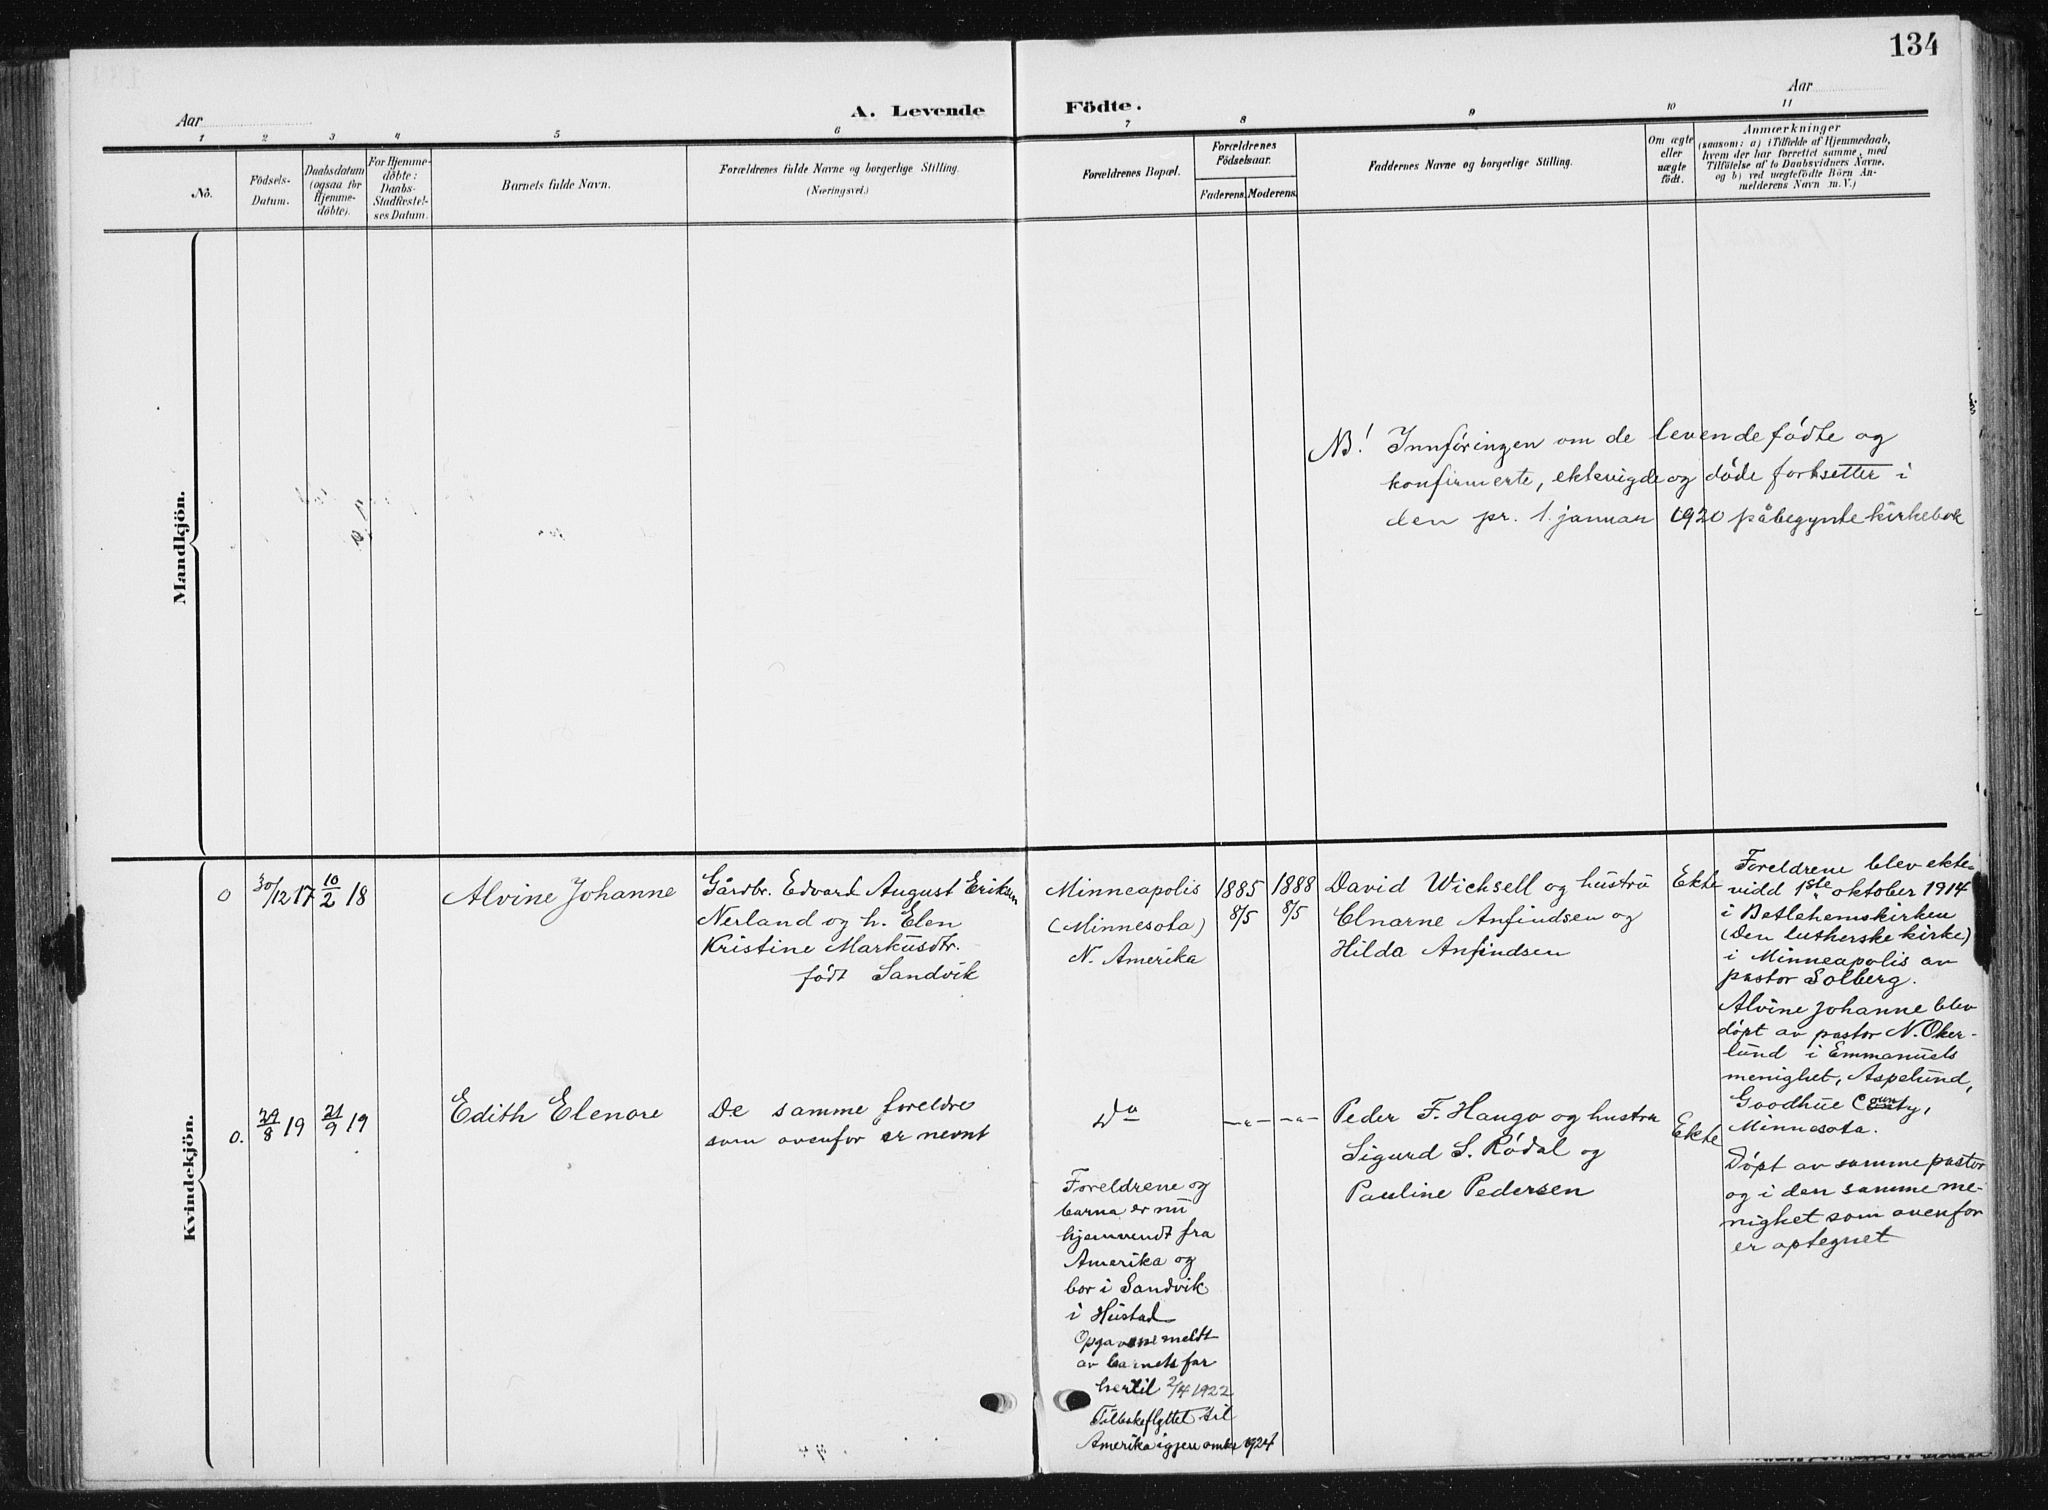 134
A. Levende Födte.
Aar
Aar
1
2
3
4
5
6
7
8
9
10
11
No.
Födsels-
Datum.
Daabsdatum
(ogsaa for
Hjemme-
döbte).
For Hjemme-
döbte:
Daabs-
Stadfæstel-
ses Datum.
Barnets fulde Navn.
Forældrenes fulde Navne og borgerlige Stilling.
(Næringsvei.)
Forældrenes Bopæl.
Forældrenes
Födselsaar.
Faderens.
Moderens.
Faddernes Navne og borgerlige Stilling.
Om ægte
eller
uægte
födt.
Anmærkninger
(saasom: a) i Tilfælde af Hjemmedaab,
hvem der har forrettet samme, med
Tilföielse af to Daabsvidners Navne,
og b) ved uægtefödte Börn An-
melderens Navn m. V.)
Mandkjön.
NB! Innføringen om de levendefødte og
konfirmerte, ektevigde og døde fortsetter i
den pr. 1. januar 1920 påbegynte kirkebok
Kvindekjön.
0
30/12 17
10/2 18
Alvine Johanne
Gårdbr. Edvard August Eriksen
Nerland og h. Elen
Kristine Markusdtr.
født Sandvik
Minneapolis
(Minnesota)
N. Amerika
1885
8/5
1888
8/5
David Wicksell og hustru
Elnarne Anfindsen og
Hilda Anfindsen
Ekte
Foreldrene blev ekte-
vidd 1ste oktober 1914
i Betlehemskirken
(Den lutherske kirke)
i Minneapolis av
pastor Solberg.
Alvine Johanne blev
døpt av pastor N. Oker-
lund i Emmanuels
menighet, Aspelund,
Goodhue County,
Minnesota.
0.
29/8 19
21/9 19
Edith Elenore
De samme foreldre
som ovenfor er nevnt
Do
—"—
—"—
Peder F. Haugo og hustru
Sigurd S. Rødal og
Pauline Pedersen
Ekte
Døpt av samme pastor
og i den samme me-
nighet som ovenfor
er optegnet
Foreldrene og
barna er nu
hjemvendt fra
Amerika og
bor i Sandvik
i Hustad
Opgavene meldt
av barnets far
hertil 2/4 1922
Tilbakeflyttet til
Amerika igjen omkr 1924